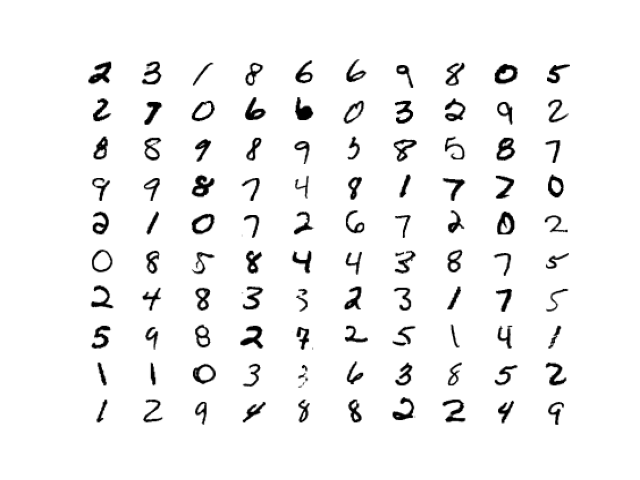 2 3 1 8 6 6 9 8 0 5
2 7 0 6 6 0 3 2 9 2
8 8 9 8 9 5 8 5 8 7
9 9 8 7 4 8 1 7 7 0
2 1 0 7 2 6 7 2 0 2
0 8 5 8 4 4 3 8 7 5
2 4 8 3 3 2 3 1 7 5
5 9 8 2 7 2 5 1 4 1
1 1 0 3 3 6 3 8 5 2
1 2 9 4 8 8 2 2 4 9